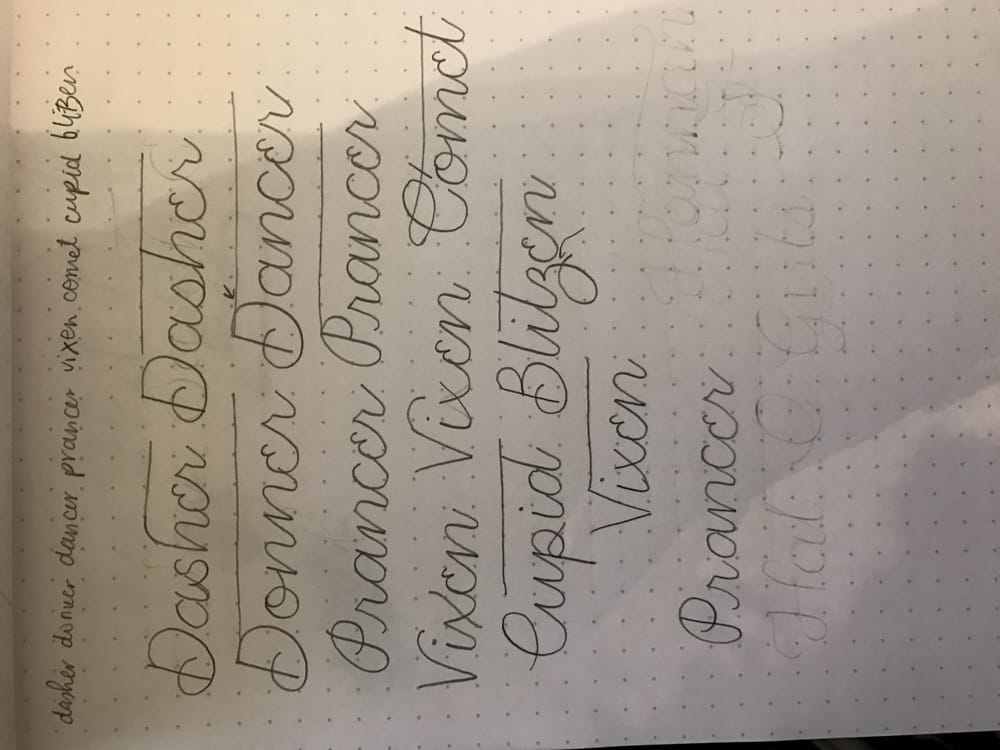 dasher donner dancer prancer vixen comet cupid blitzen
Dasher Dasher
Donner Dancer
Prancer Prancer
Vixen Vixen Comet
Cupid Blitzen
Vixen
Prancer